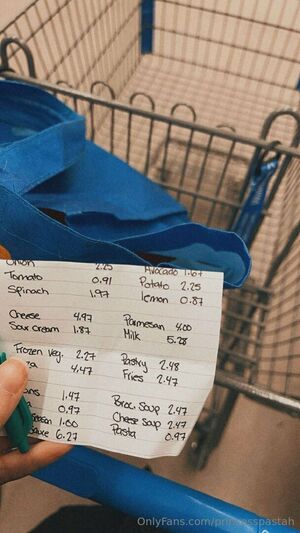 Onion 2.25
Tomato 0.91
Spinach 1.97
Cheese 4.97
Sour cream 1.87
Frozen Veg. 2.27
4.47
1.47
0.97
1.00
sauce 6.27
Avocado 1.67
Potato 2.25
lemon 0.87
Parmesan 4.00
Milk 5.28
Pastry 2.48
Fries 2.47
Broc. Soup 2.47
Cheese Soup 2.47
Pasta 0.97
OnlyFans.com/princesspastah